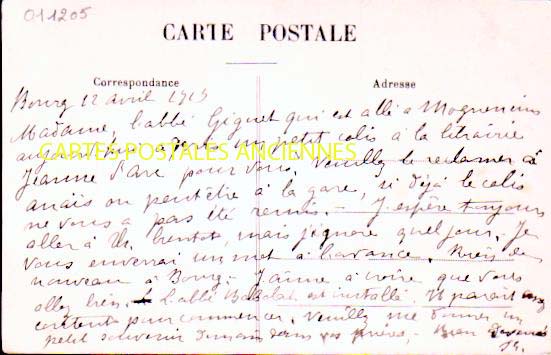 011205
CARTE POSTALE
Correspondance
Adresse
Bourg 12 avril 1915
Madame, l'abbé Gignet qui est allé à Mogneneins
aujourd'hui a un petit colis à la librairie
CARTES POSTALES ANCIENNES
Jeanne d'Arc pour vous. Veuillez le réclamer à
ou peut être à la gare, si déjà le colis
ne vous a pas été remis. — J'espère toujours
aller à Th. bientôt, mais j'ignore quel jour. Je
vous enverrai un mot à l'avance. Rien de
nouveau à Bourg. — J'aime à croire que vous
allez bien. L'abbé est installé. Il paraît assez
content pour commencer. Veuillez me donner un
petit souvenir dans vos prières. — Bien